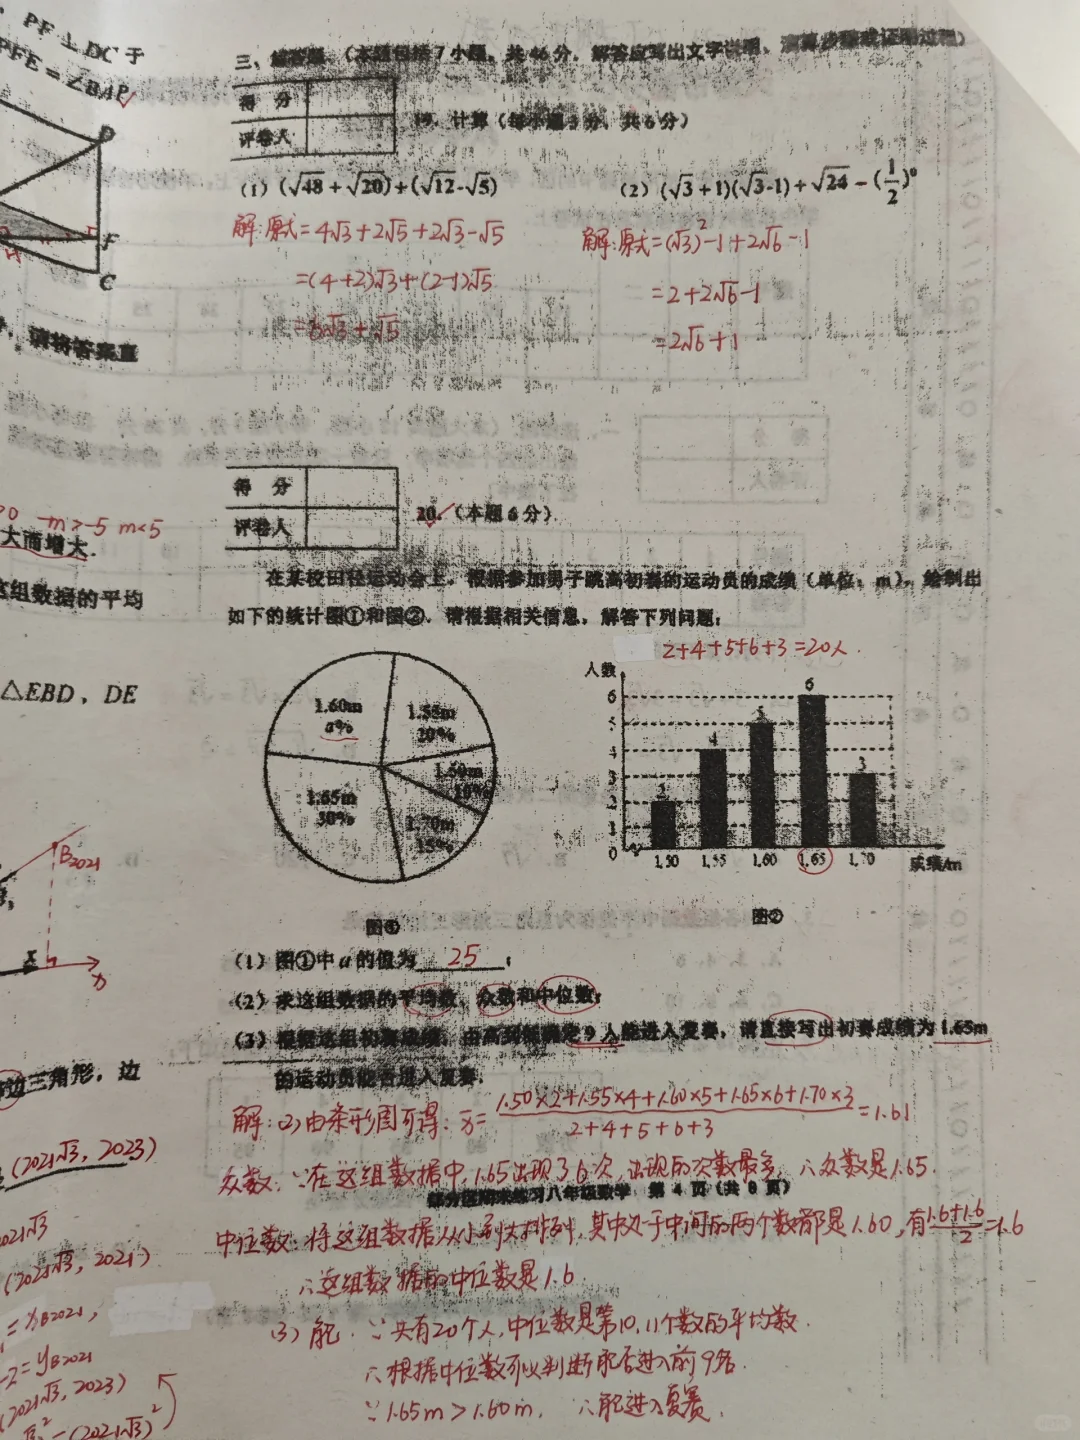 PF⊥DC于
PFE=∠BAP
D
F
C
请将答案直
-m>-5 m<5
大而增大.
这组数据的平均
△EBD, DE
B2021
x
边三角形, 边
(2021√3, 2023)
2021√3
(2021√3, 2021)
=xB2021,
-2=yB2021
(2021√3, 2023)
三、解答题.(本题包括7小题, 共46分. 解答应写出文字说明、演算步骤或证明过程)
得 分
评卷人
19. 计算(每小题3分, 共6分)
(1) (√48+√20)+(√12-√5)
(2) (√3+1)(√3-1)+√24-(1/2)⁰
解:原式=4√3+2√5+2√3-√5
=(4+2)√3+(2-1)√5
=6√3+√5
解:原式=(√3)²-1+2√6-1
=2+2√6-1
=2√6+1
得 分
评卷人
20.(本题6分)
在某校田径运动会上, 根据参加男子跳高初赛的运动员的成绩(单位: m), 绘制出
如下的统计图①和图②. 请根据相关信息, 解答下列问题:
2+4+5+6+3=20人.
1.60m
a%
1.55m
20%
1.50m
10%
1.65m
30%
1.70m
15%
图①
人数
6
5
4
3
2
1
0
2
4
5
6
3
1.50 1.55 1.60 1.65 1.70 成绩/m
图②
(1) 图①中a的值为 25 ;
(2) 求这组数据的平均数、众数和中位数;
(3) 根据这组初赛成绩, 由高到低确定9人能进入复赛, 请直接写出初赛成绩为1.65m
的运动员能否进入复赛.
解:(2)由条形图可得: x̄=(1.50×2+1.55×4+1.60×5+1.65×6+1.70×3)/(2+4+5+6+3)=1.61
众数:∵在这组数据中, 1.65出现了6次, 出现的次数最多, ∴众数是1.65.
部分区期末练习八年级数学 第 4 页(共 8 页)
中位数:将这组数据从小到大排列, 其中处于中间的两个数都是1.60, 有(1.6+1.6)/2=1.6
∴这组数据的中位数是1.6.
(3) 能. ∵共有20个人, 中位数是第10, 11个数的平均数.
∴根据中位数可以判断能否进入前9名.
∵1.65m>1.60m. ∴能进入复赛.